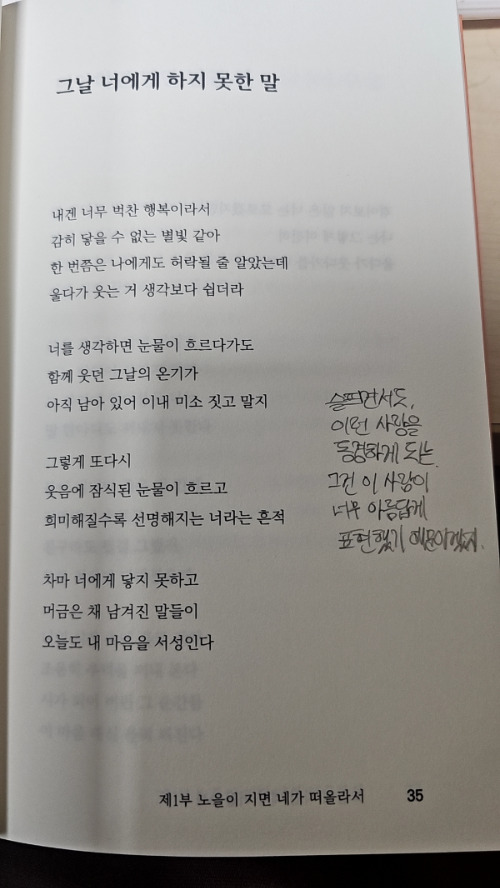 그날 너에게 하지 못한 말
내겐 너무 벅찬 행복이라서
감히 닿을 수 없는 별빛 같아
한 번쯤은 나에게도 허락될 줄 알았는데
울다가 웃는 거 생각보다 쉽더라
너를 생각하면 눈물이 흐르다가도
함께 웃던 그날의 온기가
아직 남아 있어 이내 미소 짓고 말지
그렇게 또다시
웃음에 잠식된 눈물이 흐르고
희미해질수록 선명해지는 너라는 흔적
차마 너에게 닿지 못하고
머금은 채 남겨진 말들이
오늘도 내 마음을 서성인다
슬프면서도,
이런 사랑을
동경하게 되는.
그건 이 사랑이
너무 아름답게
표현했기 때문이겠지.
제1부 노을이 지면 네가 떠올라서 35